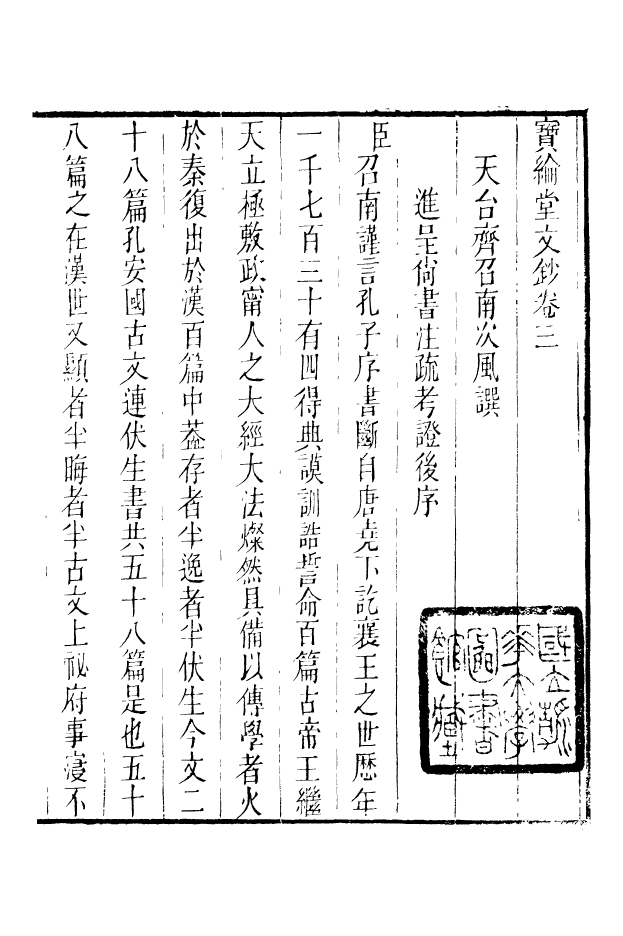 寶綸堂文鈔卷三
天台齊召南次風譔
進呈尙書注疏考證後序
臣召南謹言孔子序書斷自唐堯下訖襄王之世厯年
一千七百三十有四得典謨訓誥誓命百篇古帝王繼
天立極敷政甯人之大經大法燦然具備以傳學者火
於秦復出於漢百篇中葢存者半逸者半伏生今文二
十八篇孔安國古文連伏生書共五十八篇是也五十
八篇之在漢世又顯者半晦者半古文上祕府事寖不